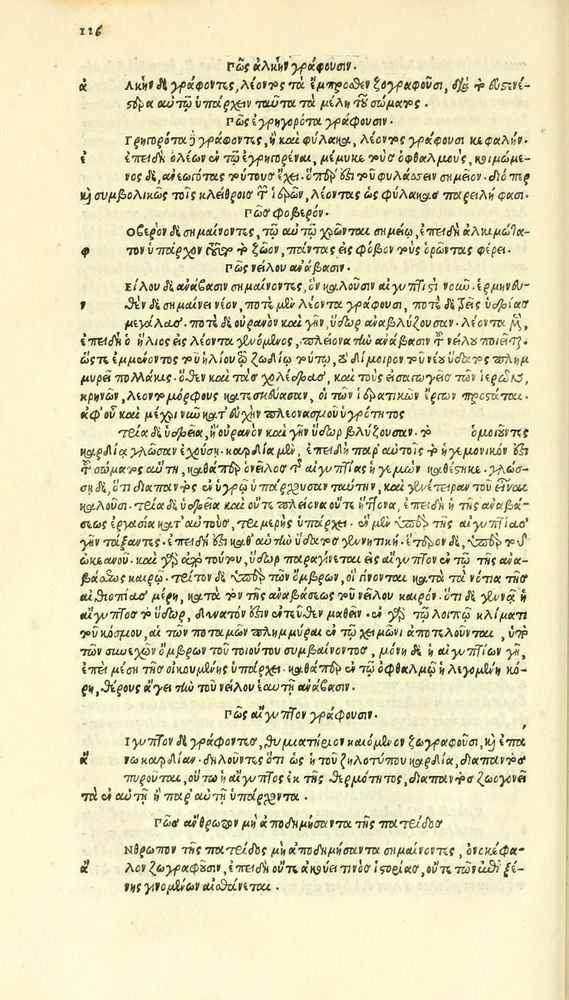 126
Πῶς ἀλκὴν γράφουσιν.
α Λκὴν δὲ γράφοντες, λέοντος τὰ ἔμπροσθεν ζωγραφοῦσι, διὰ τὸ εὐσθενέ-
στερα αὐτῷ ὑπάρχειν ταῦτα τὰ μέλη τοῦ σώματος.
Πῶς ἐγρηγορότα γράφουσιν.
Γρηγορότα δὲ γράφοντες, ἢ καὶ φύλακα, λέοντος γράφουσι κεφαλήν.
ε ἐπειδὴ ὁ λέων ἐν τῷ ἐγρηγορέναι, μέμυκε τοὺς ὀφθαλμούς, κοιμώμε-
νος δὲ, ἀνεῳγότας τούτους ἔχει. ὅπερ ἐστὶ τοῦ φυλάσσειν σημεῖον. διόπερ
καὶ συμβολικῶς τοῖς κλείθροις τῶν ἱερῶν, λέοντας ὡς φύλακας παρειλήφασι.
Πῶς φοβερόν.
Οβερὸν δὲ σημαίνοντες, τῷ αὐτῷ χρῶνται σημείῳ, ἐπειδὴ ἀλκιμώτα-
φ τον ὑπάρχον τὸ ζῷον, πάντας εἰς φόβον τοὺς ὁρῶντας φέρει.
Πῶς νείλου ἀνάβασιν.
Είλου δὲ ἀνάβασιν σημαίνοντες, ὃν καλοῦσιν αἰγυπτιστὶ νοῦν. ἑρμηνευ-
ν θὲν δὲ σημαίνει νέον, ποτὲ μὲν λέοντα γράφουσι, ποτὲ δὲ τρεῖς ὑδρίας
μεγάλας. ποτὲ δὲ οὐρανὸν καὶ γῆν, ὕδωρ ἀναβλύζουσαν. λέοντα μὲν,
ἐπειδὴ ὁ ἥλιος εἰς λέοντα γενόμενος, πλείονα τὴν ἀνάβασιν τοῦ νείλου ποιεῖται.
ὥστε ἐμμένοντος τοῦ ἡλίου τῷ ζωδίῳ τούτῳ, τὸ δίμοιρον τοῦ νέου ὕδατος πλημ
μυρεῖ πολλάκις. ὅθεν καὶ τὰς χολέδρας, καὶ τοὺς εἰσαγωγεῖς τῶν ἱερῶν
κρηνῶν, λεοντομόρφους κατεσκεύασαν, οἱ τῶν ἱερατικῶν ἔργων προστάται.
ἀφ' οὗ καὶ μέχρι νῦν κατ' εὐχὴν πλεονασμοῦ ὑγρότητος
τρία ὑδρεῖα, ἢ οὐρανὸν καὶ γῆν ὕδωρ βλύζουσαν. τὸ ὁμοιοῦντες
καρδίᾳ γλῶσσαν ἐχούσῃ. καρδίᾳ μὲν, ἐπειδὴ παρ' αὐτοῖς τὸ ἡγεμονικὸν ἐστὶ
τοῦ σώματος αὕτη, καθάπερ ὁ νεῖλος τῆς αἰγυπτίας ἡγεμὼν καθέστηκε. γλώσ-
σῃ δὲ, ὅτι διαπαντὸς ἐν ὑγρῷ ὑπάρχουσαν ταύτην, καὶ γενέτειραν τοῦ εἶναι
καλοῦσι. τρία δὲ ὑδρεῖα καὶ οὔτε πλείονα οὔτε ἥττονα, ἐπειδὴ ἡ τῆς ἀναβά-
σεως ἐργασία κατ' αὐτοὺς, τριμερὴς ὑπάρχει. ἓν μὲν ὑπὲρ τῆς αἰγυπτίας
γῆν τάξαντες. ἐπειδή ἐστι καθ' αὑτὴν ὕδατος γεννητική. ἕτερον δὲ, ὑπὲρ τοῦ
ὠκεανοῦ. καὶ γὰρ ἀπὸ τούτου, ὕδωρ παραγίνεται εἰς αἴγυπτον ἐν τῷ τῆς ἀνα-
βάσεως καιρῷ. τρίτον δὲ ὑπὲρ τῶν ὄμβρων, οἳ γίνονται κατὰ τὰ νότια τῆς
αἰθιοπίας μέρη, κατὰ τὸν τῆς ἀναβάσεως τοῦ νείλου καιρόν. ὅτι δὲ γεννᾷ ἡ
αἴγυπτος τὸ ὕδωρ, δυνατόν ἐστιν ἐντεῦθεν μαθεῖν. ἐν γὰρ τῷ λοιπῷ κλίματι
τοῦ κόσμου, αἱ τῶν ποταμῶν πλημμύραι ἐν τῷ χειμῶνι ἀποτελοῦνται, ὑπὸ
τῶν συνεχῶν ὄμβρων τοῦ τοιούτου συμβαίνοντος, μόνη δὲ ἡ αἰγυπτίων γῆ,
ἐπεὶ μέση τῆς οἰκουμένης ὑπάρχει. καθάπερ ἐν τῷ ὀφθαλμῷ ἡ λεγομένη κό-
ρη, θέρους ἄγει τὴν τοῦ νείλου ἑαυτῇ ἀνάβασιν.
Πῶς αἴγυπτον γράφουσιν.
Ιγυπτον δὲ γράφοντες, θυμιατήριον καιόμενον ζωγραφοῦσι, καὶ ἐπά
α νω καρδίαν. δηλοῦντες ὅτι ὡς ἡ τοῦ ζηλοτύπου καρδία, διαπαντὸς
πυροῦται, οὕτω ἡ αἴγυπτος ἐκ τῆς θερμότητος, διαπαντὸς ζωογονεῖ
τὰ ἐν αὐτῇ ἢ παρ' αὐτῇ ὑπάρχοντα.
Πῶς ἄνθρωπον μὴ ἀποδημήσαντα τῆς πατρίδος
Νθρωπον τῆς πατρίδος μὴ ἀποδημήσαντα σημαίνοντες, ὀνοκέφα-
α λον ζωγραφοῦσιν, ἐπειδὴ οὔτε ἀκούει τινὸς ἱστορίας, οὔτε τῶν ἐπὶ ξέ-
νης γινομένων αἰσθάνεται.